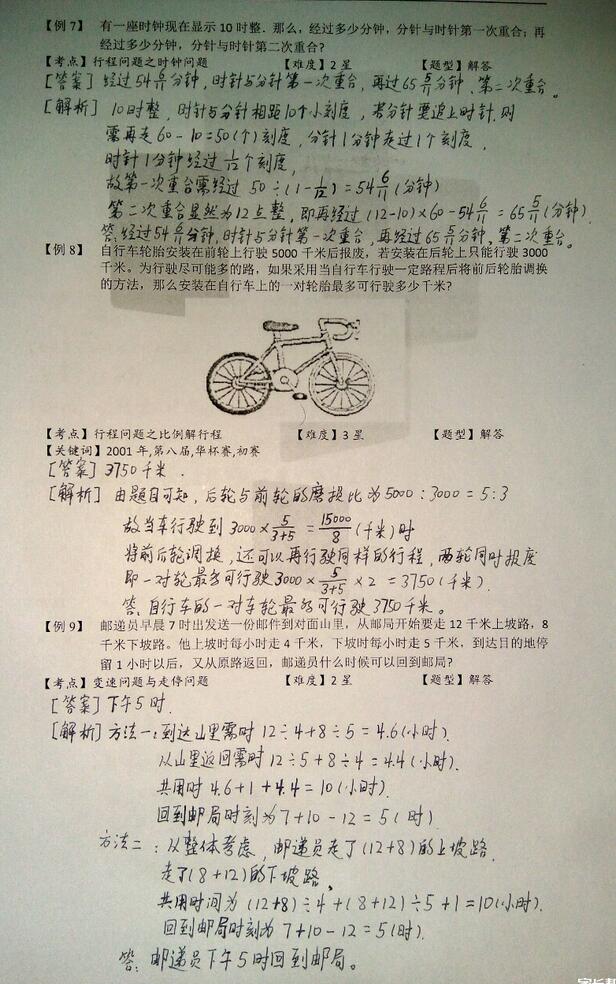 【例 7】 有一座时钟现在显示 10 时整．那么，经过多少分钟，分针与时针第一次重合；再
经过多少分钟，分针与时针第二次重合？
【考点】行程问题之时钟问题 【难度】2 星 【题型】解答
[答案] 经过 54 6/11 分钟，时针与分针第一次重合，再过 65 5/11 分钟、第二次重合。
[解析] 10时整，时针与分针相距10个小刻度，若分针要追上时针，则
需再走 60－10=50(个)刻度，分针1分钟走过1个刻度，
时针1分钟经过 1/12 个刻度，
故第一次重合需经过 50÷(1－1/12)=54 6/11 (分钟)
第二次重合显然为12点整，即再经过 (12-10)×60-54 6/11 = 65 5/11 (分钟)
答：经过54 6/11 分钟，时针与分针第一次重合，再经过65 5/11 分钟，第二次重合。
【例 8】 自行车轮胎安装在前轮上行驶 5000 千米后报废，若安装在后轮上只能行驶 3000
千米。为行驶尽可能多的路，如果采用当自行车行驶一定路程后将前后轮胎调换
的方法，那么安装在自行车上的一对轮胎最多可行驶多少千米？
【考点】行程问题之比例解行程 【难度】3 星 【题型】解答
【关键词】2001 年,第八届,华杯赛,初赛
[答案] 3750千米．
[解析] 由题目可知，后轮与前轮的磨损比为5000：3000=5:3
故当车行驶到 3000×5/(3+5) = 15000/8 (千米)时
将前后轮调换，还可以再行驶同样的行程，两轮同时报废
即一对轮最多可行驶3000×5/(3+5)×2=3750(千米)．
答：自行车的一对车轮最多可行驶3750千米。
【例 9】 邮递员早晨 7 时出发送一份邮件到对面山里，从邮局开始要走 12 千米上坡路，8
千米下坡路。他上坡时每小时走 4 千米，下坡时每小时走 5 千米，到达目的地停
留 1 小时以后，又从原路返回，邮递员什么时候可以回到邮局？
【考点】变速问题与走停问题 【难度】2 星 【题型】解答
[答案] 下午5时．
[解析] 方法一：到达山里需时 12÷4+8÷5=4.6(小时)．
从山里返回需时 12÷5+8÷4=4.4(小时)．
共用时 4.6+1+4.4=10(小时)．
回到邮局时刻为 7+10-12=5(时)
方法二：从整体考虑，邮递员走了(12+8)的上坡路，
走了(8+12)的下坡路，
共用时间为 (12+8)÷4+(8+12)÷5+1=10(小时)．
回到邮局时刻为 7+10-12=5(时)．
答：邮递员下午5时回到邮局。